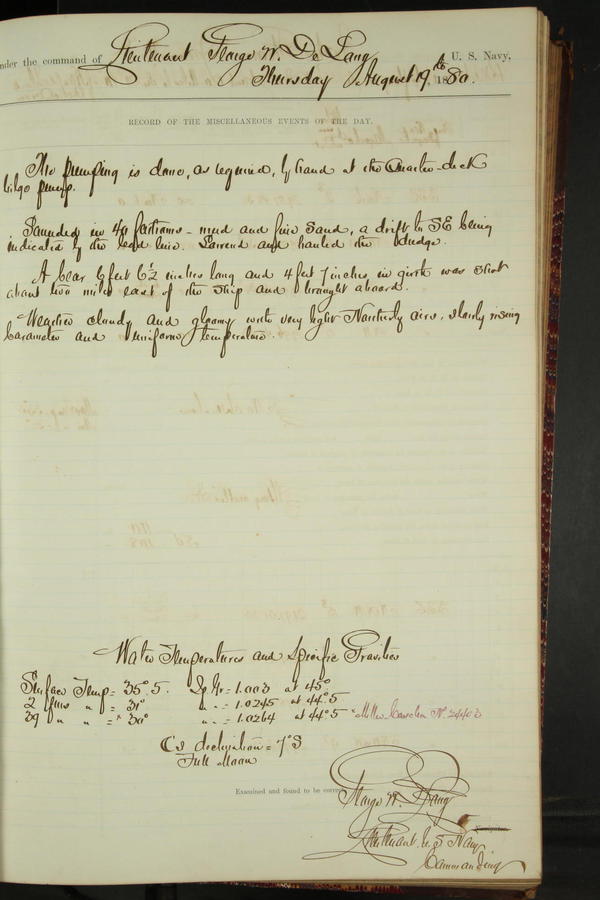 under the command of Lieutenant George W. De Long, U. S. Navy,
Thursday August 19th, 1880.
RECORD OF THE MISCELLANEOUS EVENTS OF THE DAY.
The pumping is done, as required, by hand at the Quarter-deck
bilge pump.
Sounded in 40 fathoms - mud and fine sand, a drift to SE being
indicated by the lead line. Lowered and hauled the dredge.
A bear 6 feet 6½ inches long and 4 feet 7 inches in girth was shot
about two miles east of the ship and brought aboard.
Weather cloudy and gloomy with very light Northerly airs, slowly rising
barometer and uniform temperature.
Water Temperatures and Specific Gravities
Surface Temp = 35°.5. Sp Gr = 1.003 at 45°
2 fms " = 31° " " = 1.0245 at 44°.5
39 " " = × 30° " " = 1.0264 at 44°.5 × Miller Casella No. 24403
C's declination = 7° S
Full Moon
Examined and found to be correct
George W. De Long
Lieutenant U.S. Navy
Navigator.
Commanding